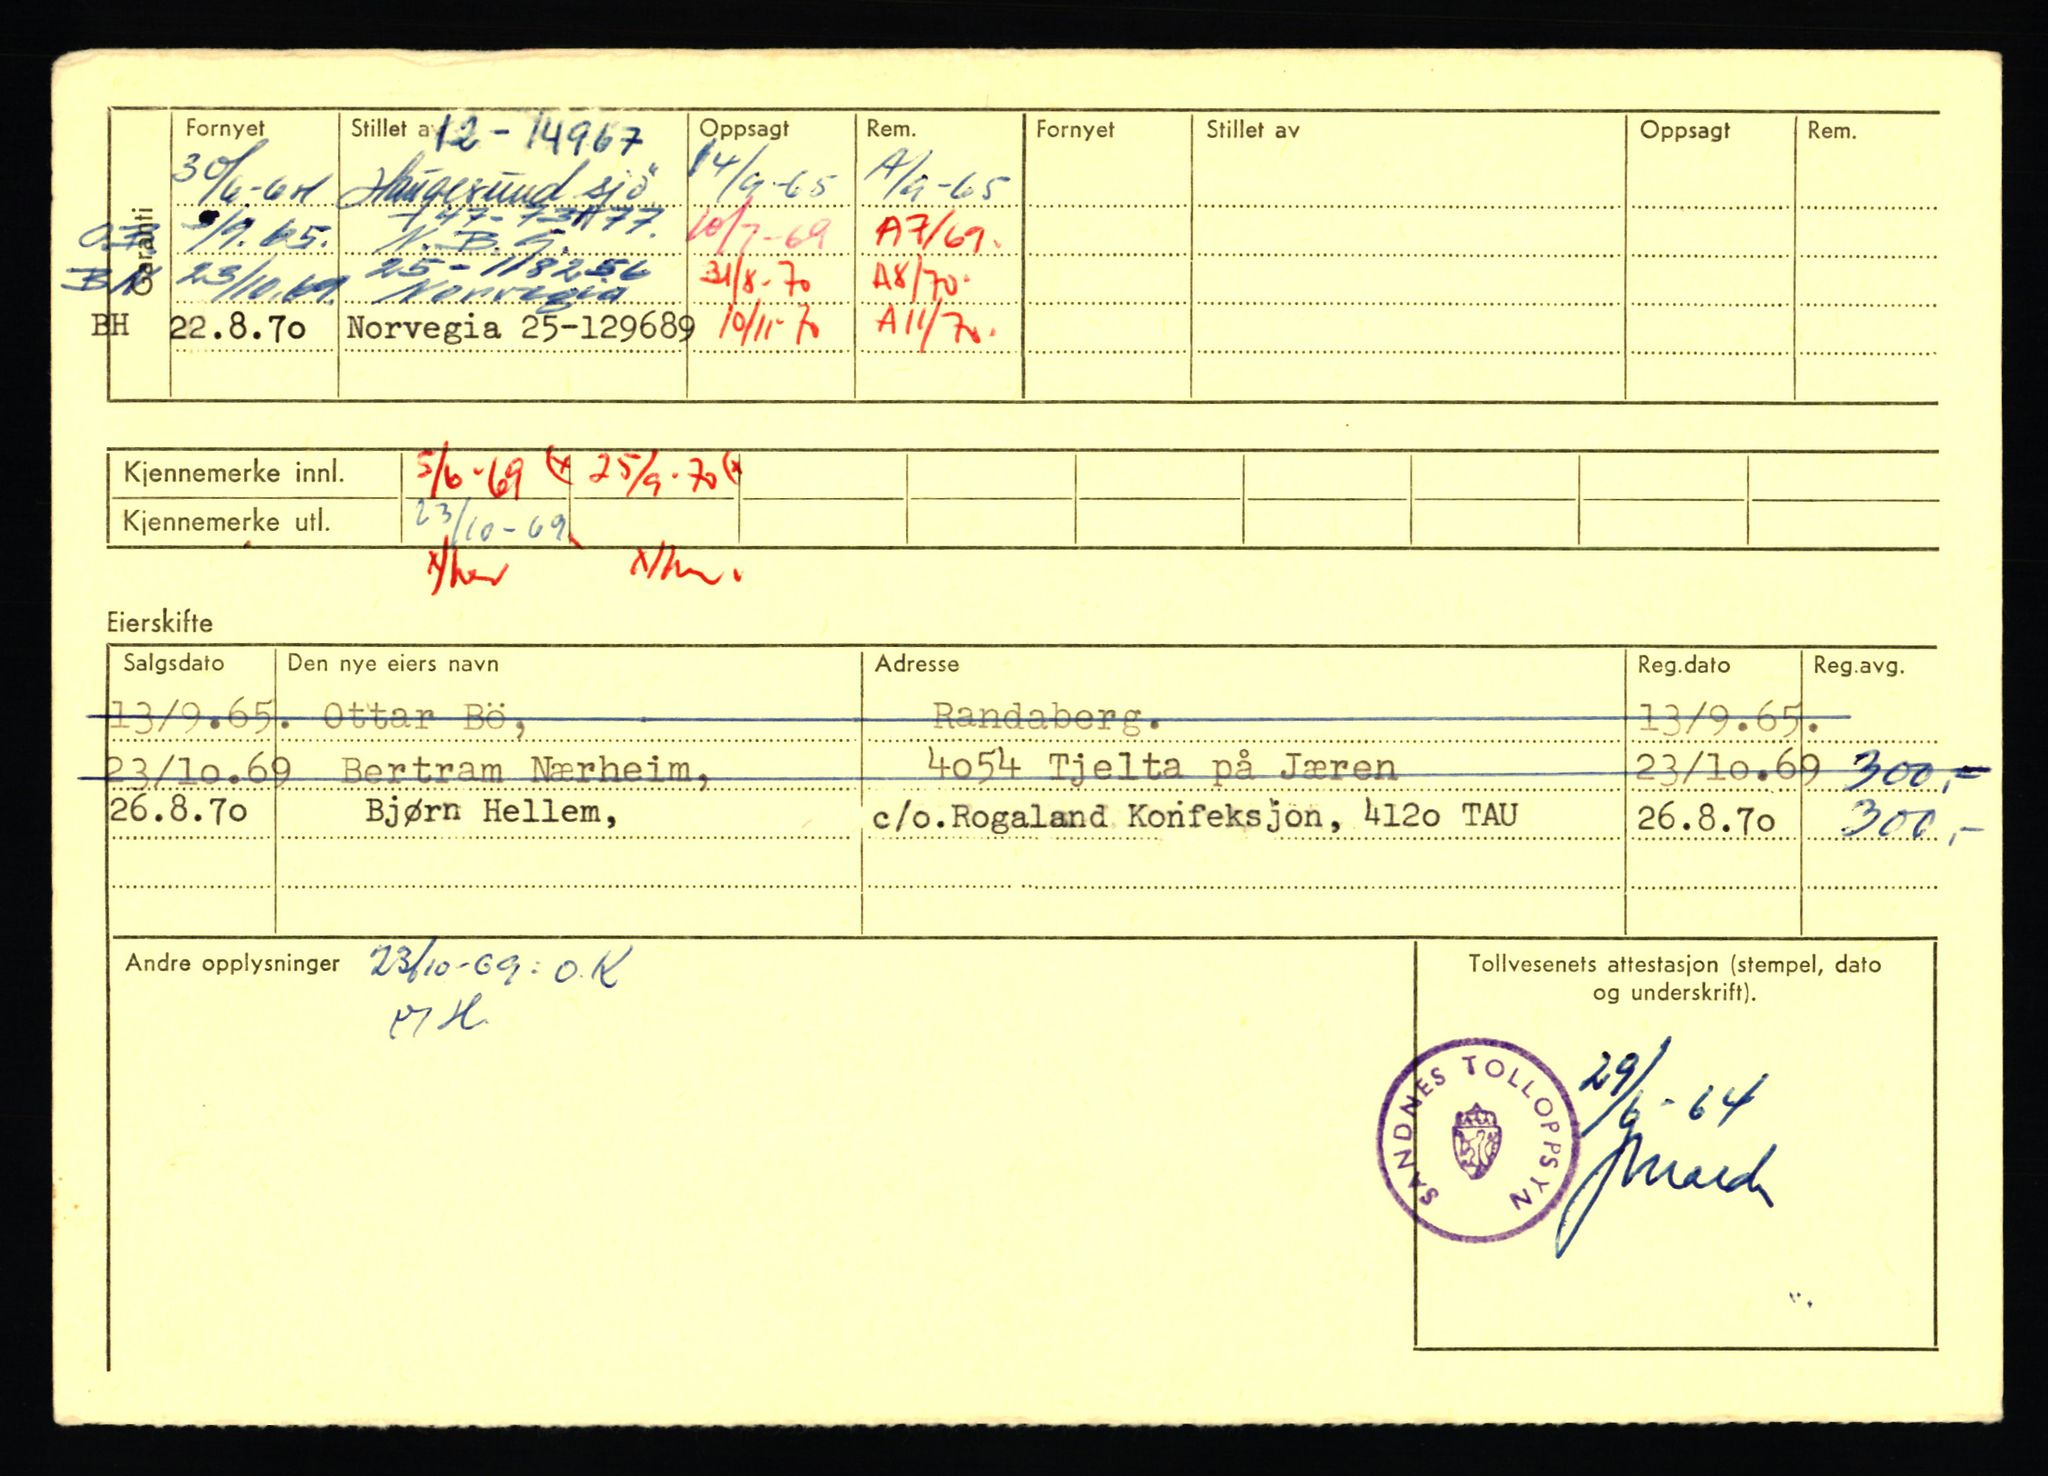 Garanti
Fornyet Stillet av 12-14967 Oppsagt Rem. Fornyet Stillet av Oppsagt Rem.
30/6-64 Haugesund sjö 14/9-65 A/9-65
/9.65. N.B.G. 10/7-69 A7/69.
23/10.69. 25-118256 Norvegia 31/8-70 A8/70.
BH 22.8.7o Norvegia 25-129689 10/11-70 A11/70.
Kjennemerke innl. 5/6-69 (x 25/9-70 (x
Kjennemerke utl. 23/10-69
Eierskifte
Salgsdato Den nye eiers navn Adresse Reg.dato Reg.avg.
13/9.65. Ottar Bö, Randaberg. 13/9.65.
23/1o.69 Bertram Nærheim, 4o54 Tjelta på Jæren 23/1o.69 300,-
26.8.7o Bjørn Hellem, c/o.Rogaland Konfeksjon, 412o TAU 26.8.7o 300,-
Andre opplysninger 23/10-69: O.K
Tollvesenets attestasjon (stempel, dato
og underskrift).
SANDNES TOLLOPPSYN
29/6-64